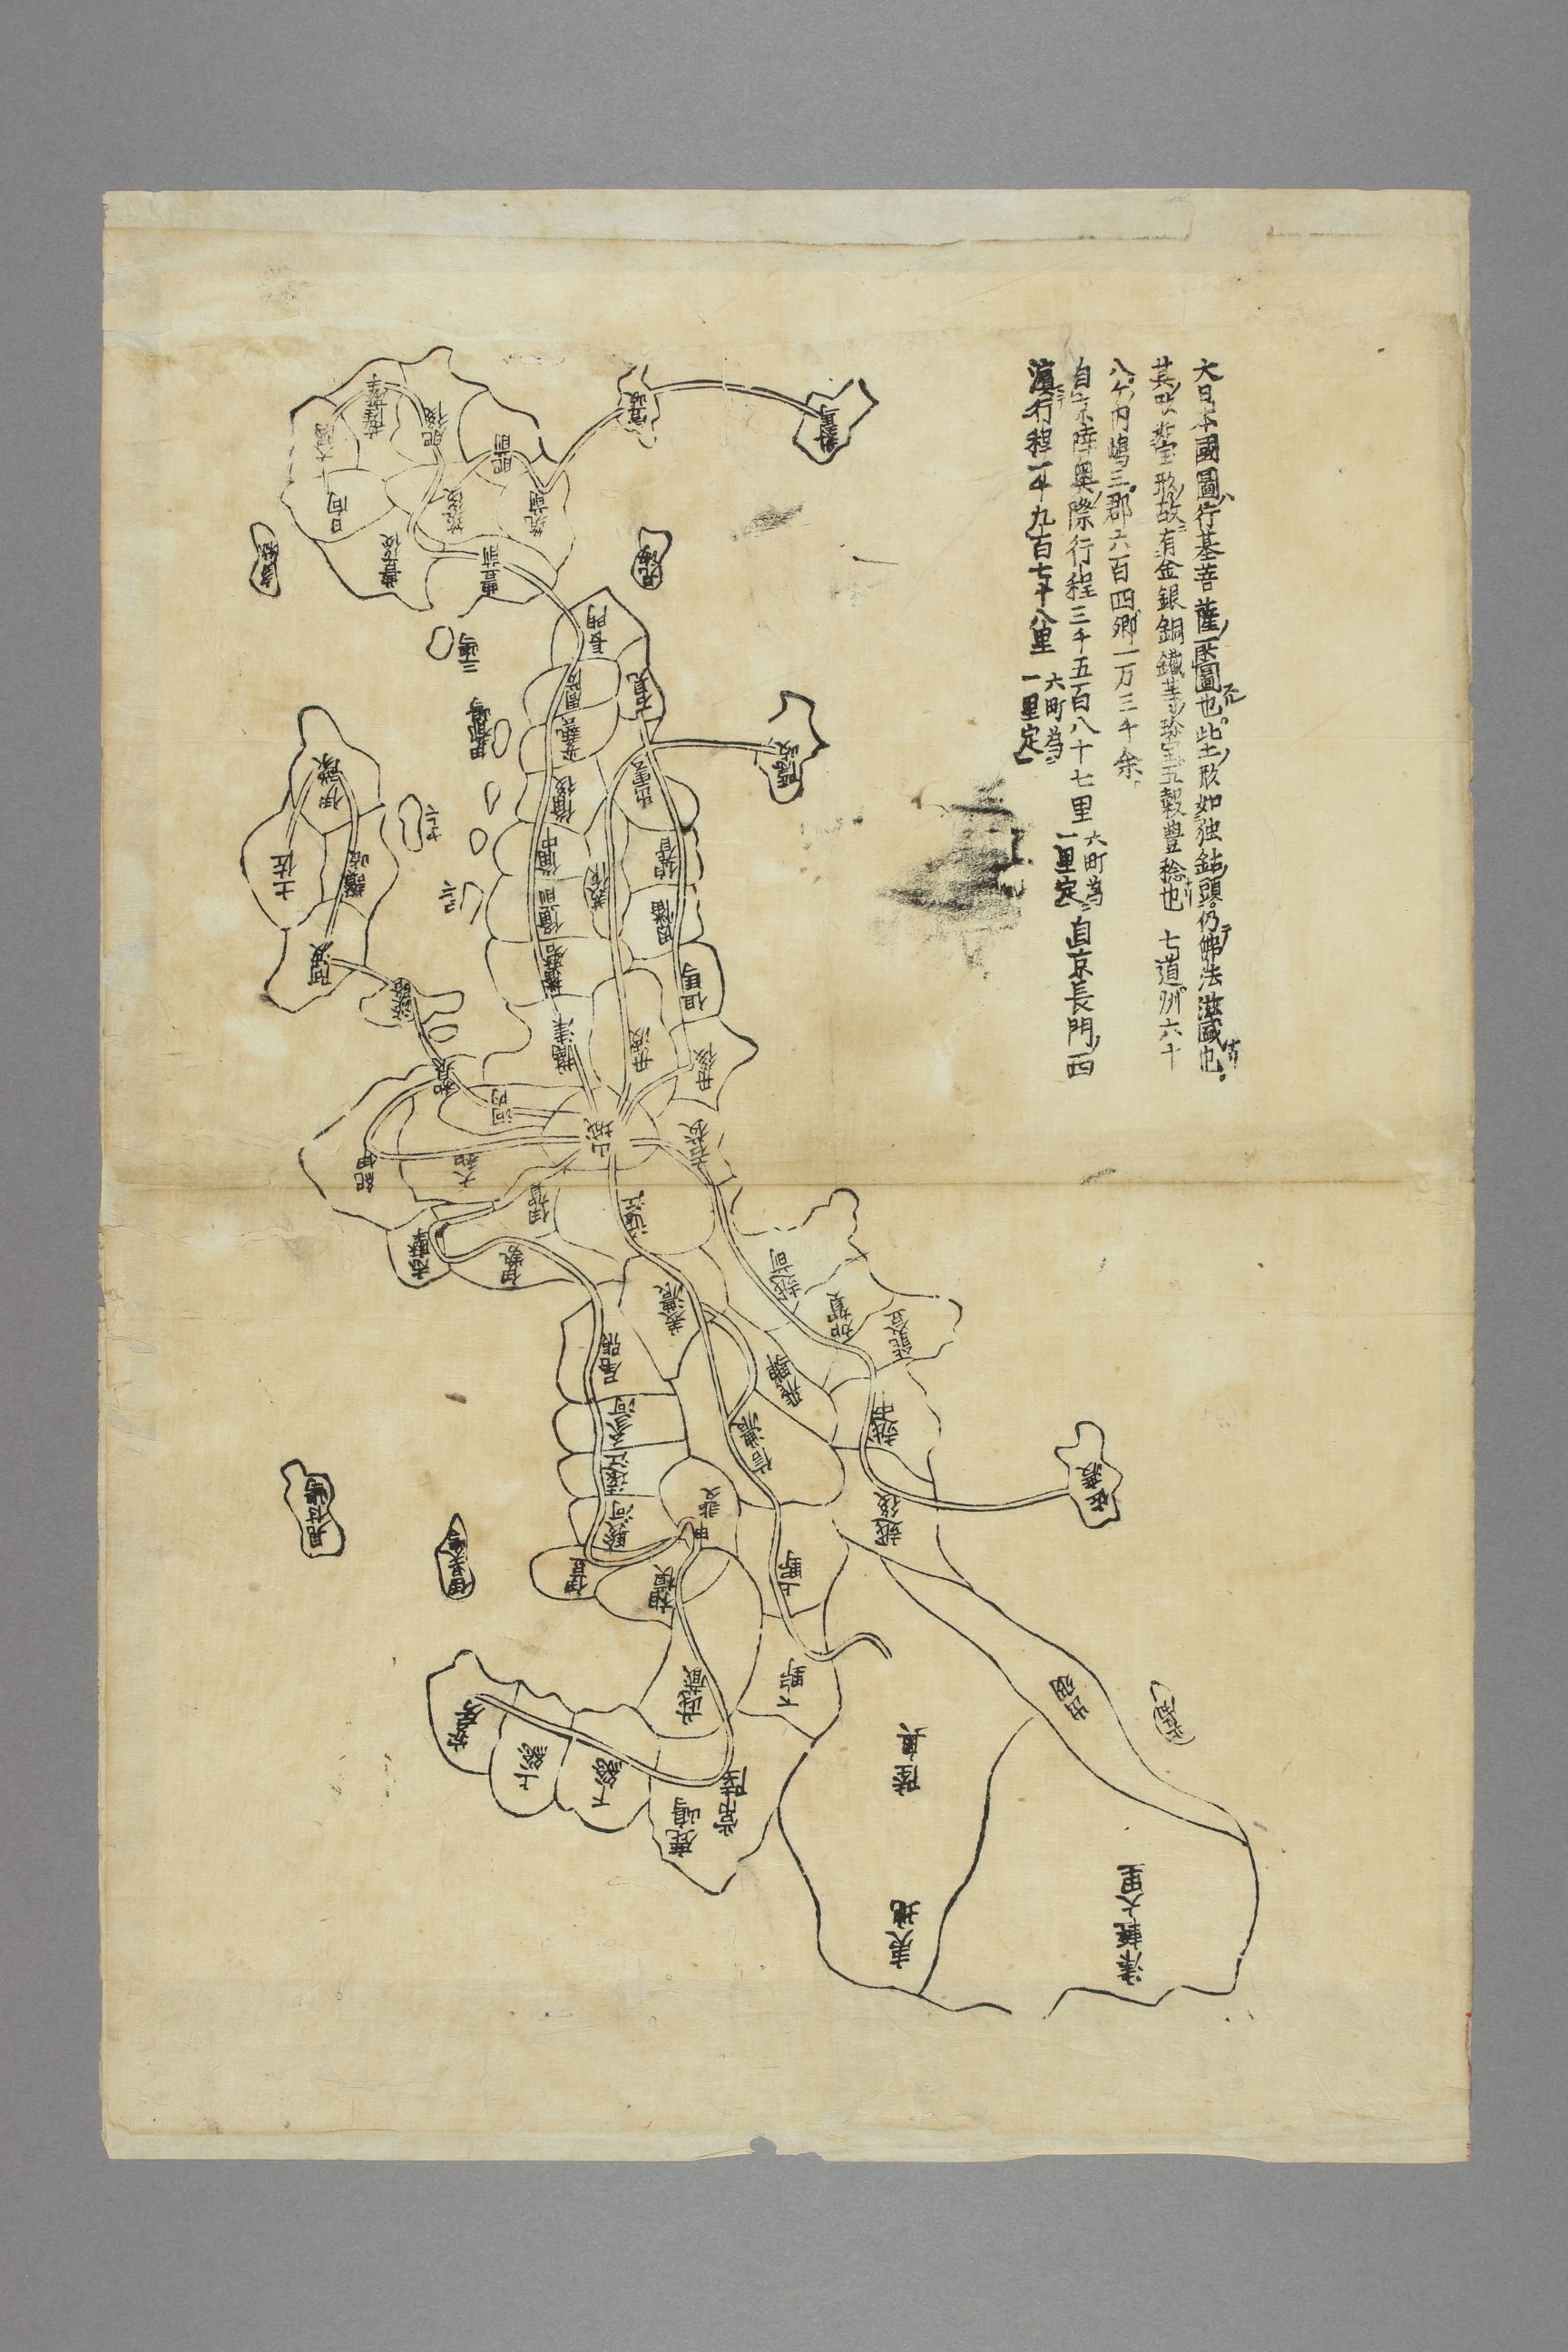 大日本國圖ハ行基菩薩ノ所圖也此土ノ形如独鈷頭仍テ佛法滋盛也
其形如宝形故ニ有金銀銅鐵等珎宝五穀豊稔也 七道州六十
八ケ内嶋三郡六百四郷一万三千余
自京陸奥ノ際行程三千五百八十七里 六町為
一里定 自京長門ノ西
濱行程一千九百七十八里 六町為
一里定
對馬
壹岐
薩摩
大隅
肥後
肥前
日向
筑後
筑前
豊後
豊前
長門
石見
周防
安藝
出雲
隠岐
備後
備中
備前
美作
伯耆
因幡
播磨
但馬
伊豫
土佐
讃岐
阿波
淡路
和泉
攝津
丹波
丹後
河内
山城
若狭
紀伊
大和
伊賀
近江
志摩
伊勢
越前
加賀
能登
美濃
飛騨
尾張
参河
遠江
駿河
信濃
越中
越後
佐渡
甲斐
伊豆
相模
上野
下野
武蔵
安房
上総
下総
鹿嶋
常陸
出羽
陸奥
夷地
津軽大里